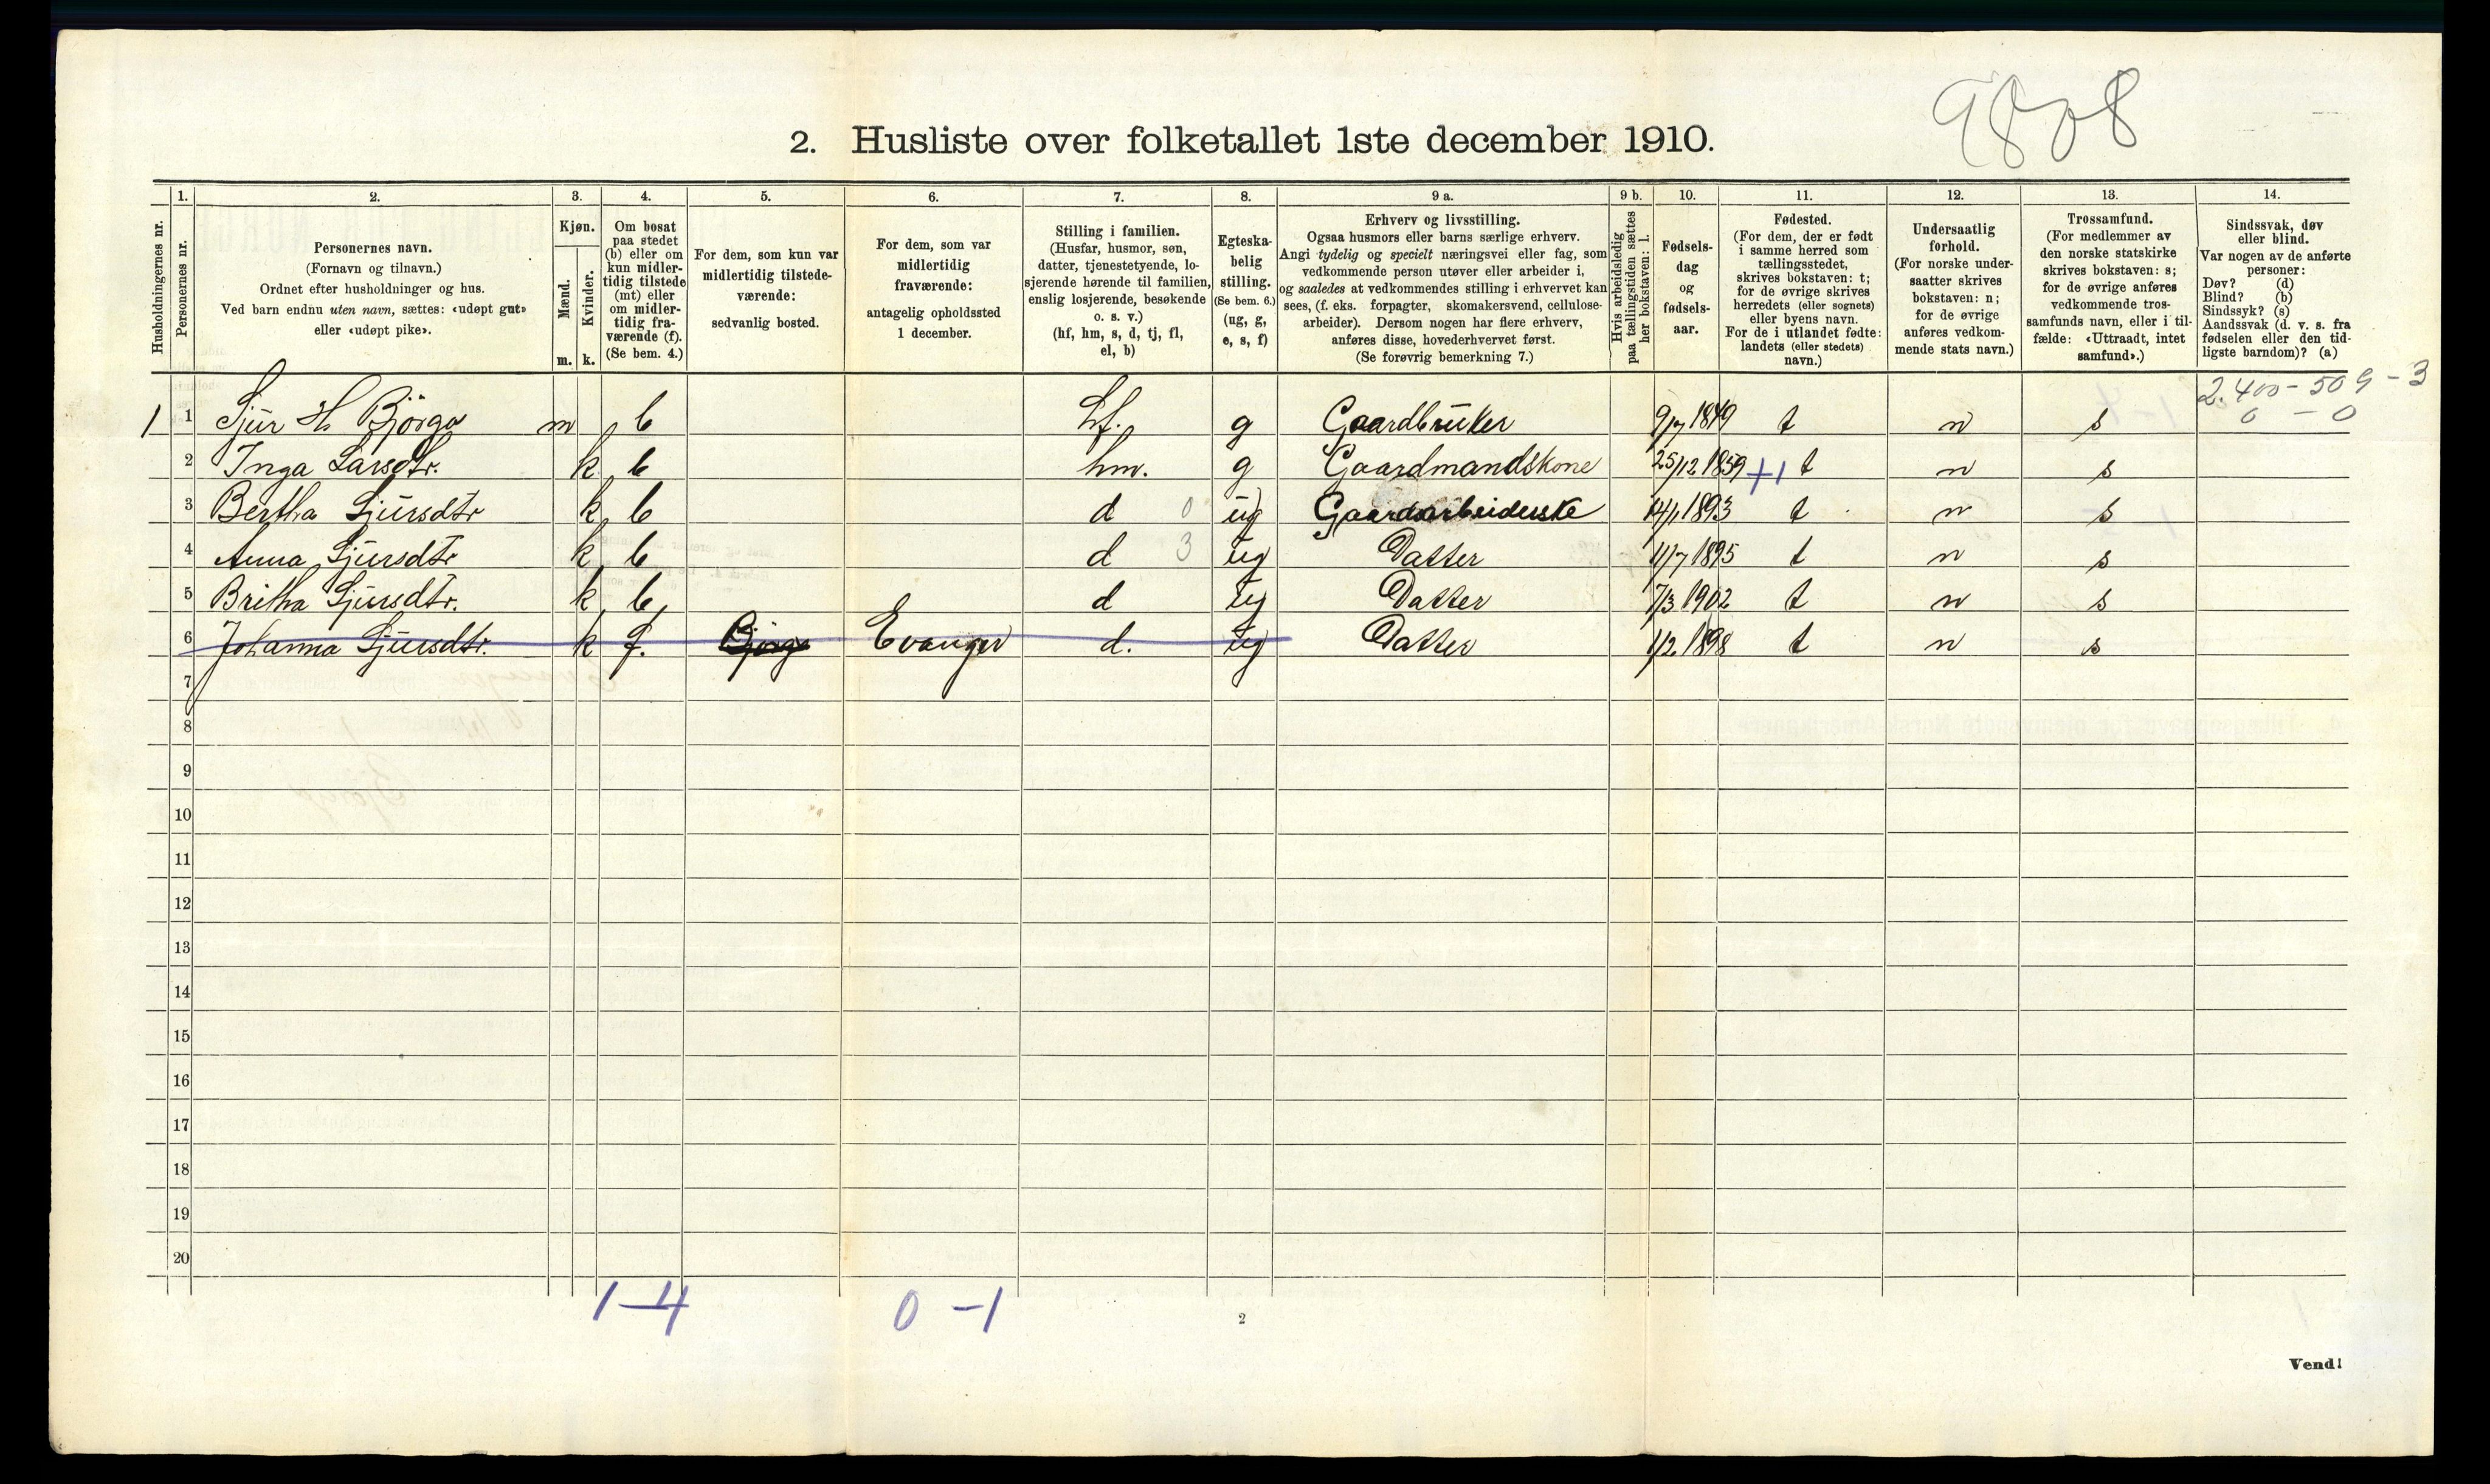 9808
2. Husliste over folketallet 1ste december 1910.
Husholdningernes nr.
1.
Personernes nr.
2.
Personernes navn.
(Fornavn og tilnavn.)
Ordnet efter husholdninger og hus.
Ved barn endnu uten navn, sættes: «udøpt gut»
eller «udøpt pike».
3.
Kjøn.
Mænd.
Kvinder.
m. k.
4.
Om bosat
paa stedet
(b) eller om
kun midler-
tidig tilstede
(mt) eller
om midler-
tidig fra-
værende (f).
(Se bem. 4.)
5.
For dem, som kun var
midlertidig tilstede-
værende:
sedvanlig bosted.
6.
For dem, som var
midlertidig
fraværende:
antagelig opholdssted
1 december.
7.
Stilling i familien.
(Husfar, husmor, søn,
datter, tjenestetyende, lo-
sjerende hørende til familien,
enslig losjerende, besøkende
o. s. v.)
(hf, hm, s, d, tj, fl,
el, b)
8.
Egteska-
belig
stilling.
(Se bem. 6.)
(ug, g,
e, s, f)
9 a.
Erhverv og livsstilling.
Ogsaa husmors eller barns særlige erhverv.
Angi tydelig og specielt næringsvei eller fag, som
vedkommende person utøver eller arbeider i,
og saaledes at vedkommendes stilling i erhvervet kan
sees, (f. eks. forpagter, skomakersvend, cellulose-
arbeider). Dersom nogen har flere erhverv,
anføres disse, hovederhvervet først.
(Se forøvrig bemerkning 7.)
9 b.
Hvis arbeidsledig
paa tællingstiden sættes
her bokstaven: l.
10.
Fødsels-
dag
og
fødsels-
aar.
11.
Fødested.
(For dem, der er født
i samme herred som
tællingsstedet,
skrives bokstaven: t;
for de øvrige skrives
herredets (eller sognets)
eller byens navn.
For de i utlandet fødte:
landets (eller stedets)
navn.)
12.
Undersaatlig
forhold.
(For norske under-
saatter skrives
bokstaven: n;
for de øvrige
anføres vedkom-
mende stats navn.)
13.
Trossamfund.
(For medlemmer av
den norske statskirke
skrives bokstaven: s;
for de øvrige anføres
vedkommende tros-
samfunds navn, eller i til-
fælde: «Uttraadt, intet
samfund».)
14.
Sindssvak, døv
eller blind.
Var nogen av de anførte
personer:
Døv? (d)
Blind? (b)
Sindssyk? (s)
Aandssvak (d. v. s. fra
fødselen eller den tid-
ligste barndom)? (a)
2.400 - 509 - 3
0 - 0
1 1 Sjur H Bjørga m b hf. g Gaardbruker 9/7 1849 t n s
2 Inga Larsdtr. k b hm. g Gaardmandskone 25/12 1859 +1 t n s
3 Bertha Sjursdtr k b d 0 ug Gaardsarbeiderske 14/1 1893 t n s
4 Anna Sjursdtr k b d 3 ug Datter 11/7 1895 t n s
5 Britha Sjursdtr. k b d ug Datter 7/3 1902 t n s
6 Johanna Sjursdtr. k f. Bjørga Evanger d. ug Datter 1/2 1898 t n s
7
8
9
10
11
12
13
14
15
16
17
18
19
20
1-4 0-1
2
Vend!